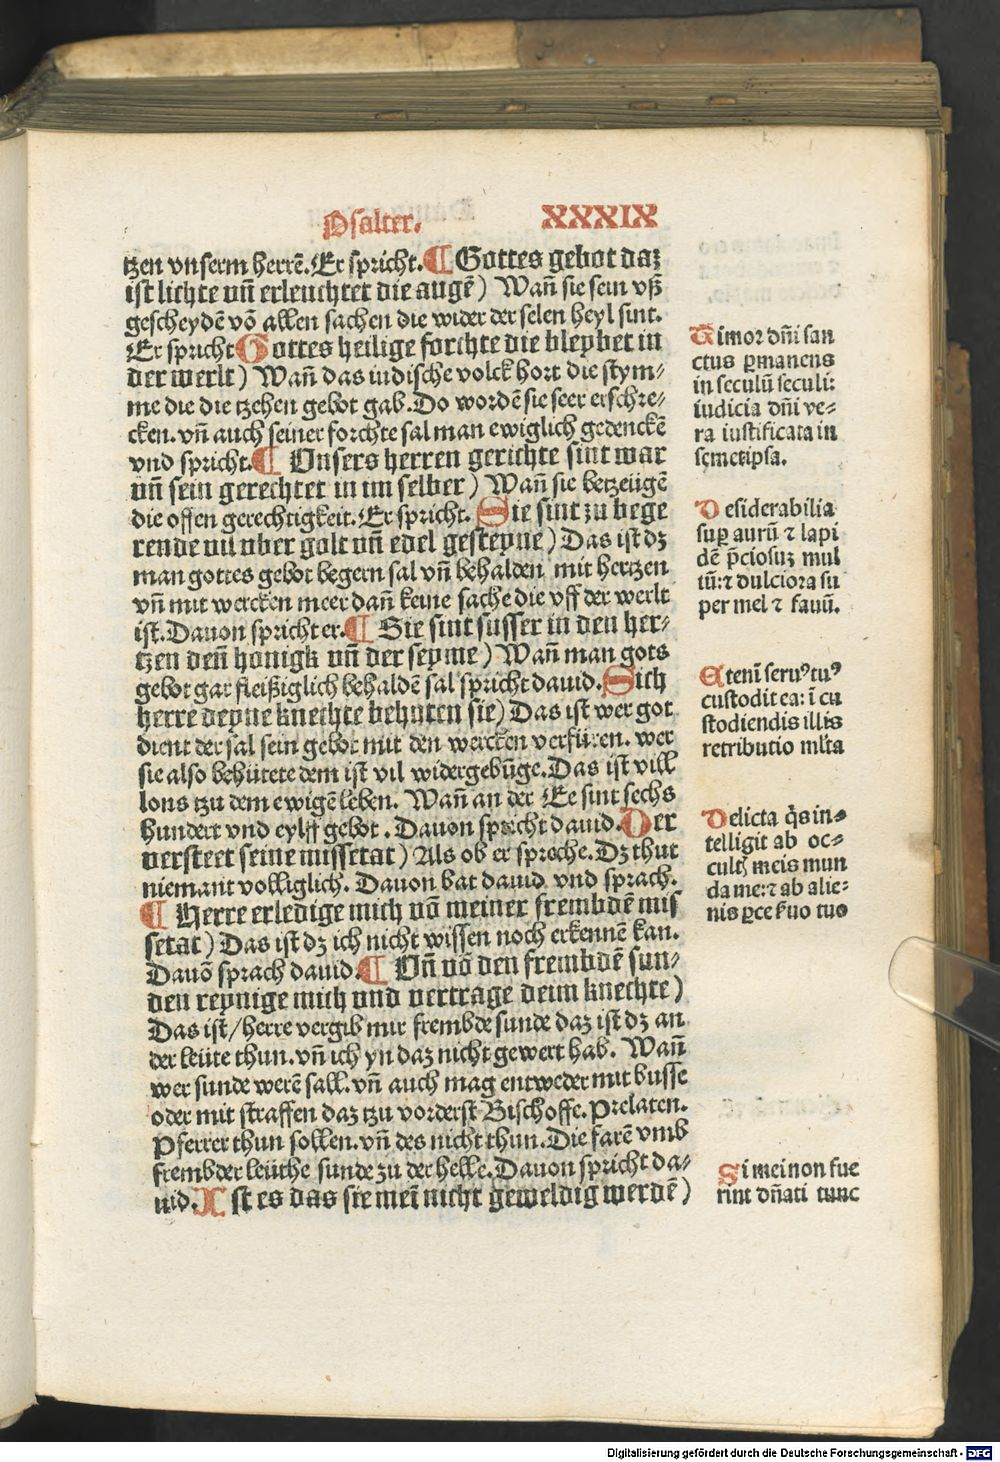 Psalter.
XXXIX
tzen vnserm herrē. Er spricht. ¶ Gottes gebot daz
ist lichte uñ erleuchtet die augē) Wañ sie sein vß
gescheydē vō allen sachen die wider der selen heyl sint.
Er spricht Gottes heilige forchte die bleybet in
der werlt) Wañ das iudische volck hort die stym⸗
me die die tzehen gebot gab. Do wordē sie seer erschre⸗
cken. vñ auch seiner forchte sal man ewiglich gedenckē
vnd spricht. ¶ Vnsers herren gerichte sint war
uñ sein gerechtet in im selber) Wañ sie betzeügē
die offen gerechtigkeit. Er spricht. Sie sint zu bege
rende uil uber golt uñ edel gesteyne) Das ist dz
man gottes gebot begern sal vñ behalden mit hertzen
vñ mit wercken meer dañ keine sache die vff der werlt
ist. Dauon spricht er. ¶ Sie sint susser in den her⸗
tzen deñ honigk uñ der seyme) Wañ man gots
gebot gar fleißiglich behaldē sal spricht dauid. Sich
herre deyne knechte behuten sie) Das ist wer got
dient der sal sein gebot mit den wercken verfüren. wer
sie also behütete dem ist vil widergebūge. Das ist vill
lons tzu dem ewigē leben. Wañ an der Ee sint sechs
hundert vnd eylff gebot. Dauon spricht dauid. Wer
versteet seine missetat) Als ob er spreche. Dz thut
niemant volliglich. Dauon bat dauid vnd sprach.
¶ Herre erledige mich uō meiner frembdē mis
setat) Das ist dz ich nicht wissen noch erkennē kan.
Dauō sprach dauid. ¶ Vñ uō den frembdē sun⸗
den reynige mich und uertrage deim knechte)
Das ist/ herre vergib mir frembde sunde daz ist dz an
der leüte thun. vñ ich yn daz nicht gewert hab. Wañ
wer sunde werē sall. vñ auch mag entweder mit busse
oder mit straffen daz tzu vorderst Bischoffe. Prelaten.
Pferrer thun sollen. vñ des nicht thun. Die farē vmb
frembder leüthe sunde zu der helle. Dauon spricht da⸗
uid. Ist es das sie mei nicht geweldig werdē)
Timor dñi san
ctus ꝑmanens
in seculū seculi:
iudicia dñi ve⸗
ra iustificata in
semetipsa.
Desiderabilia
suꝑ aurū ⁊ lapi
dē p̄ciosuꝫ mul
tū: ⁊ dulciora su
per mel ⁊ fauū.
Etenī seruꝰ tuꝰ
custodit ea: ī cu
stodiendis illis
retributio ml̄ta
Delicta q̄s in⸗
telligit ab oc⸗
cult meis mun
da me: ⁊ ab alie⸗
nis ꝑce ẜuo tuo
Si mei non fue
rint dñati tunc
Digitalisierung gefördert durch die Deutsche Forschungsgemeinschaft - DFG